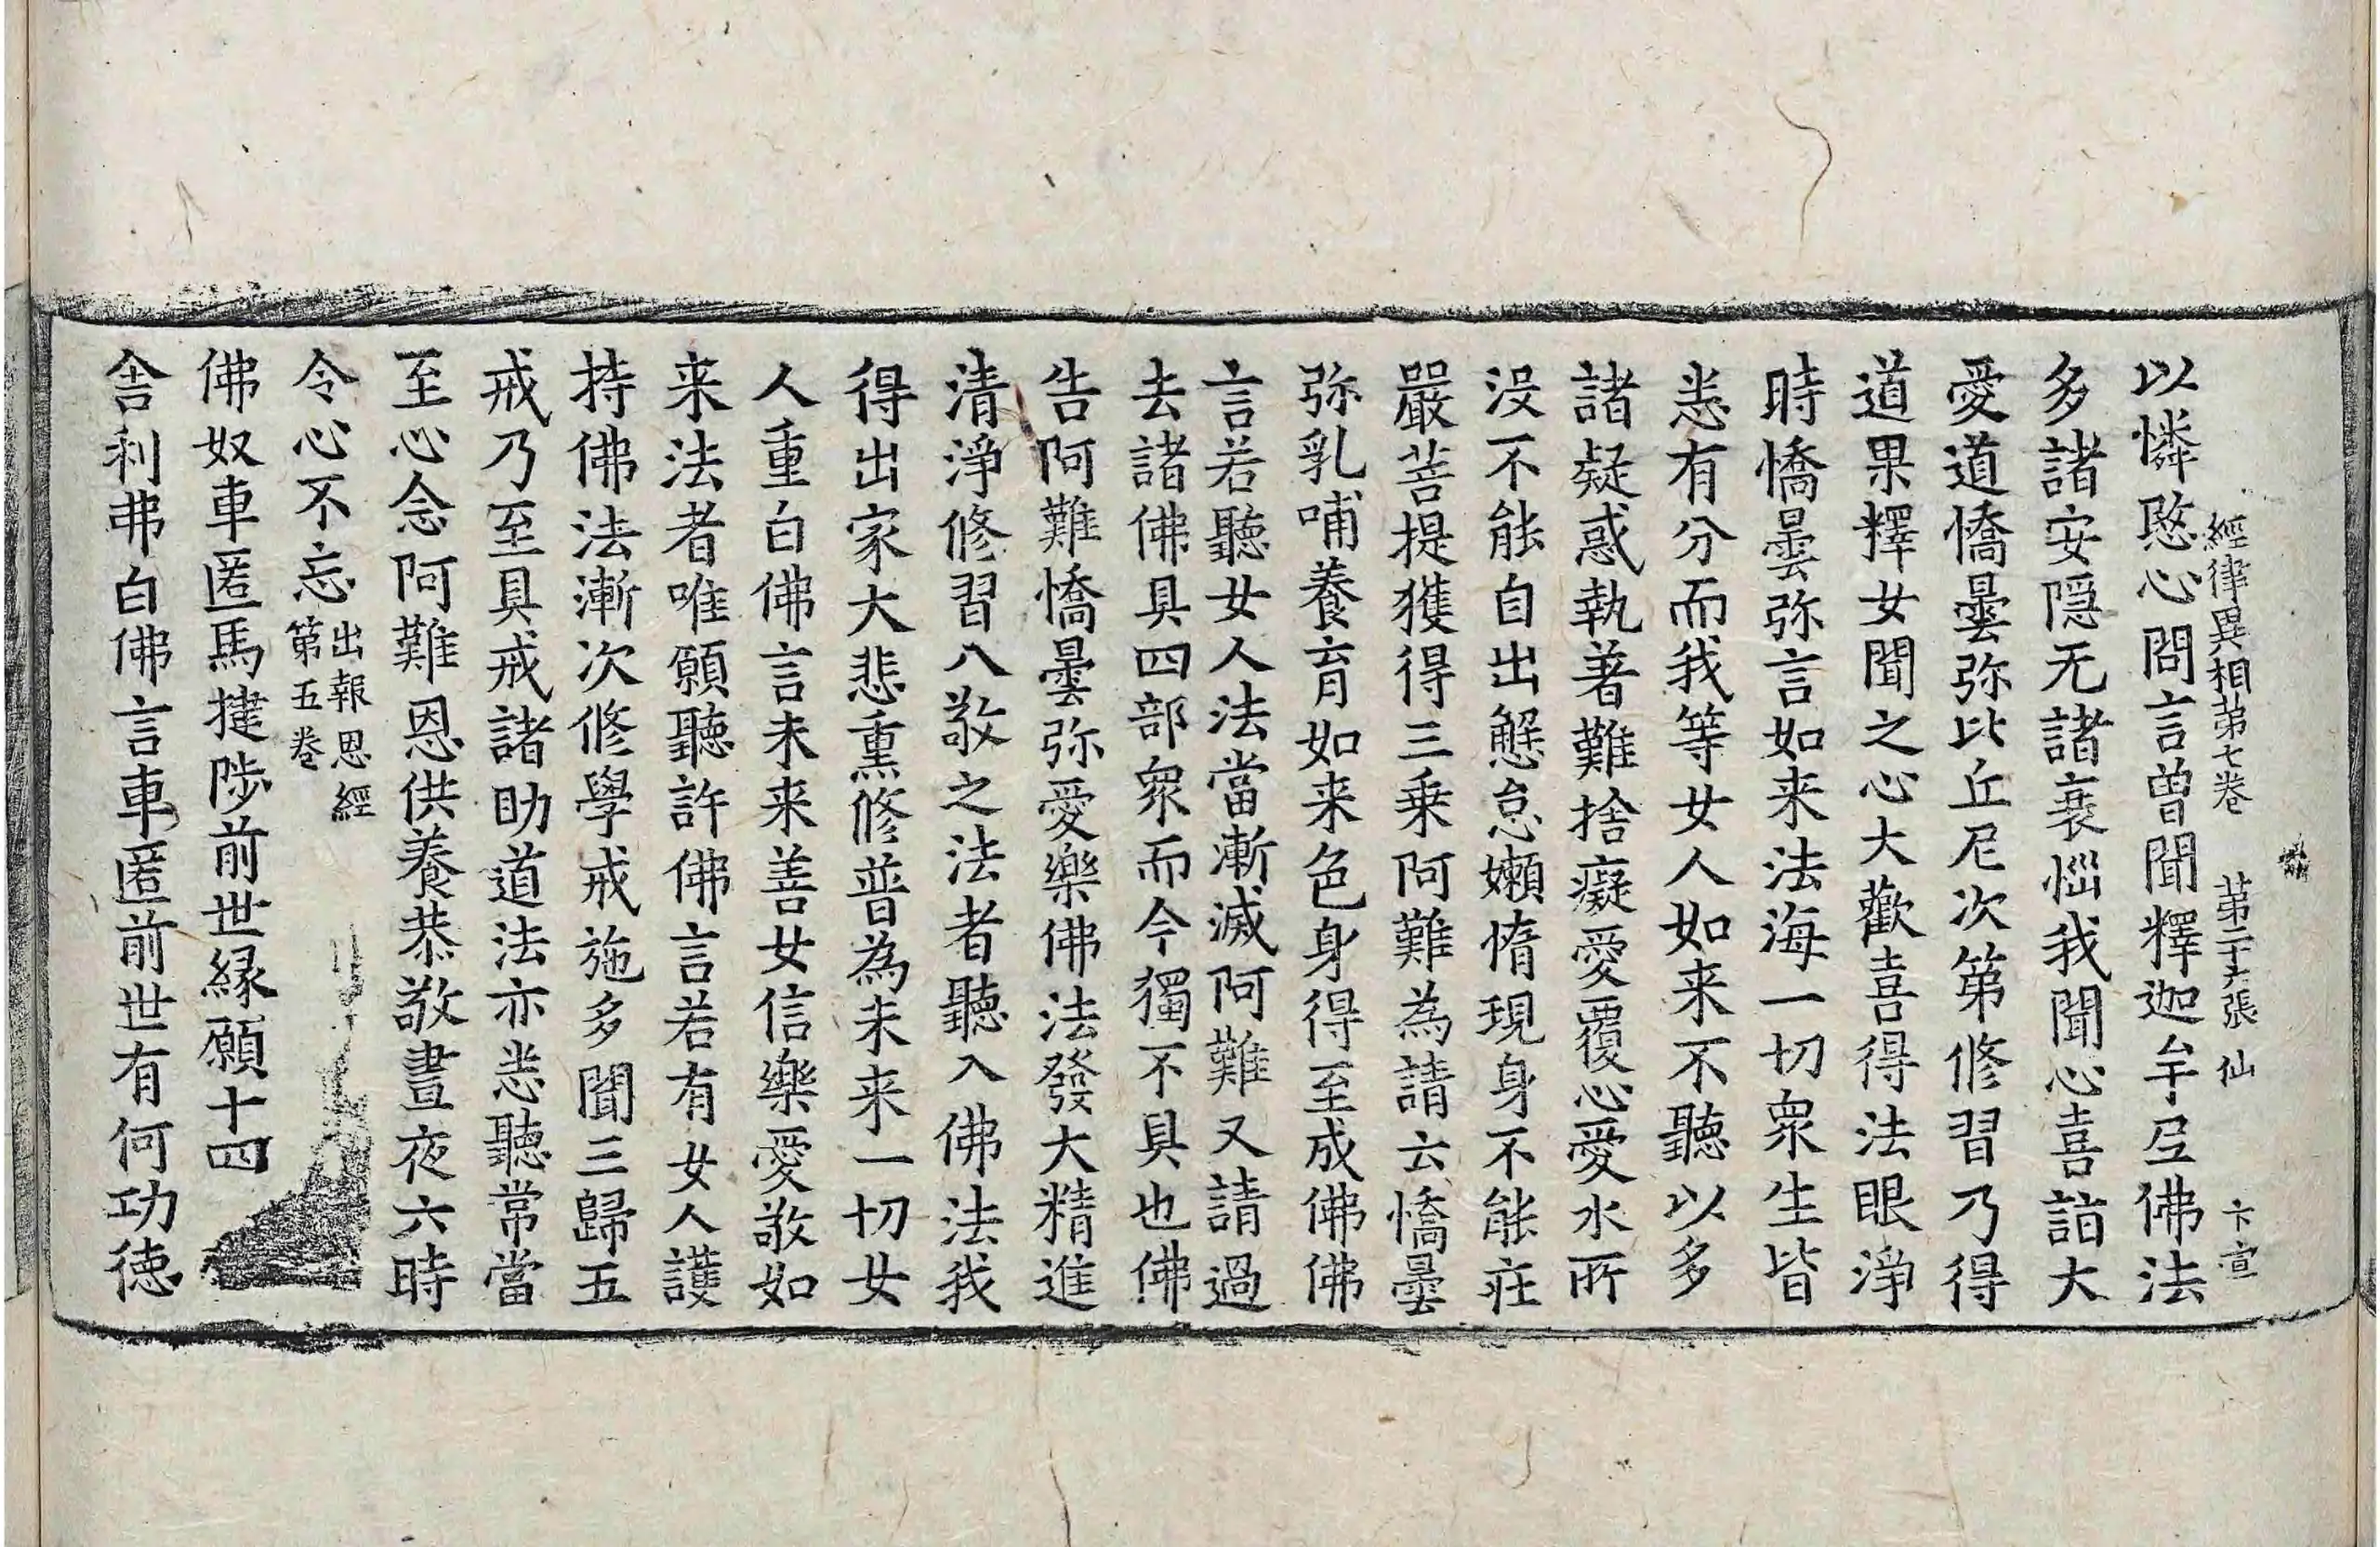 經律異相苐七卷 苐二十六張 仙 卞宣
以憐愍心問言曾聞釋迦牟𡰱佛法
多諸安隠无諸衰惱我聞心喜詣大
愛道憍曇弥比丘尼次第修習乃得
道果釋女聞之心大歡喜得法眼淨
時憍曇弥言如来法海一切衆生皆
悉有分而我等女人如来不聽以多
諸疑惑執著難捨癡愛覆心愛水所
没不能自出懈怠嬾惰現身不能莊
嚴菩提獲得三乗阿難為請云憍曇
弥乳哺養育如来色身得至成佛佛
言若聽女人法當漸滅阿難又請過
去諸佛具四部衆而今獨不具也佛
告阿難憍曇弥愛樂佛法發大精進
清淨修習八敬之法者聽入佛法我
得出家大悲熏修普為未来一切女
人重白佛言未来善女信樂愛敬如
来法者唯願聽許佛言若有女人護
持佛法漸次修學戒施多聞三歸五
戒乃至具戒諸助道法亦悉聽常當
至心念阿難恩供養恭敬晝夜六時
令心不忘出報恩經第五卷
佛奴車匿馬揵陟前世縁願十四
舎利弗白佛言車匿前世有何功徳